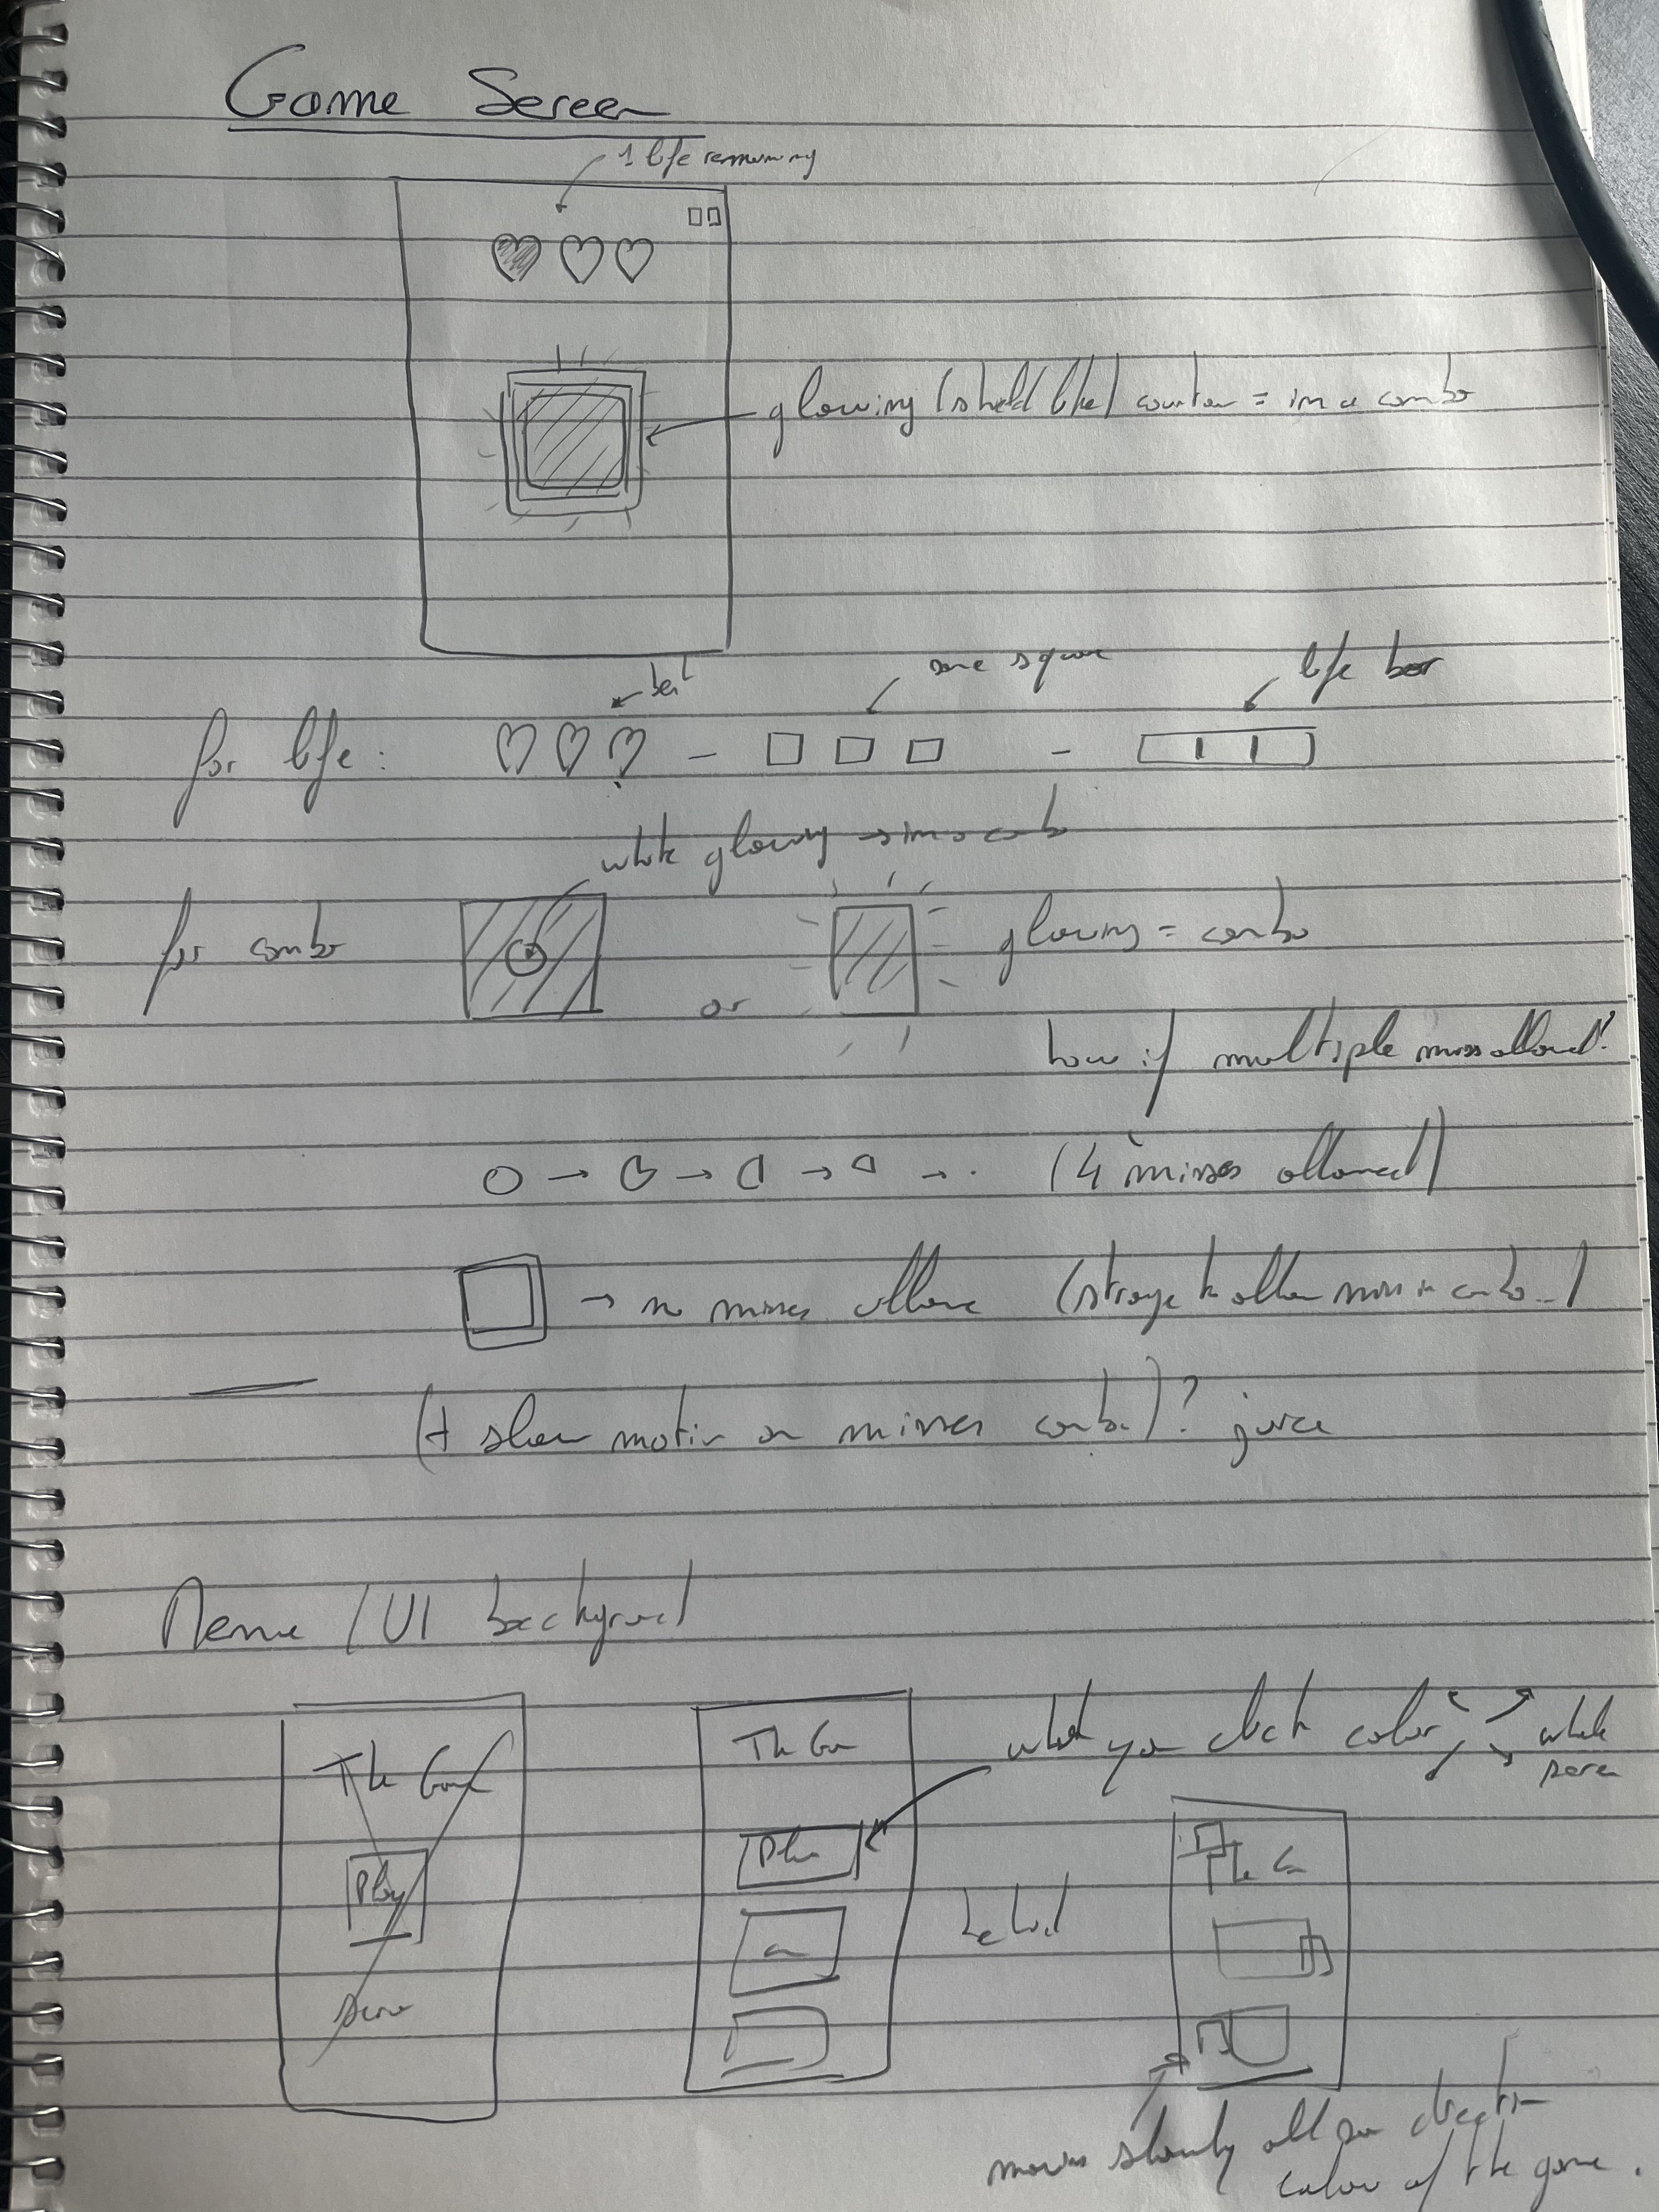 Game Screen
1 life remaining
glowing (shield like) counter = in a combo
same square
life bar
for life:
white glowing → in a combo
for combo
or
glowing = combo
how if multiple miss allowed?
(4 misses allowed)
→ no misses allowe (strange to allow miss in combo...)
(+ slow motion on misses combo)? juice
Menu / UI background
The Game
Play
The Ga
Play
what you click color
whole
screen
behind
The G
moves slowly all same direction
color of the game.